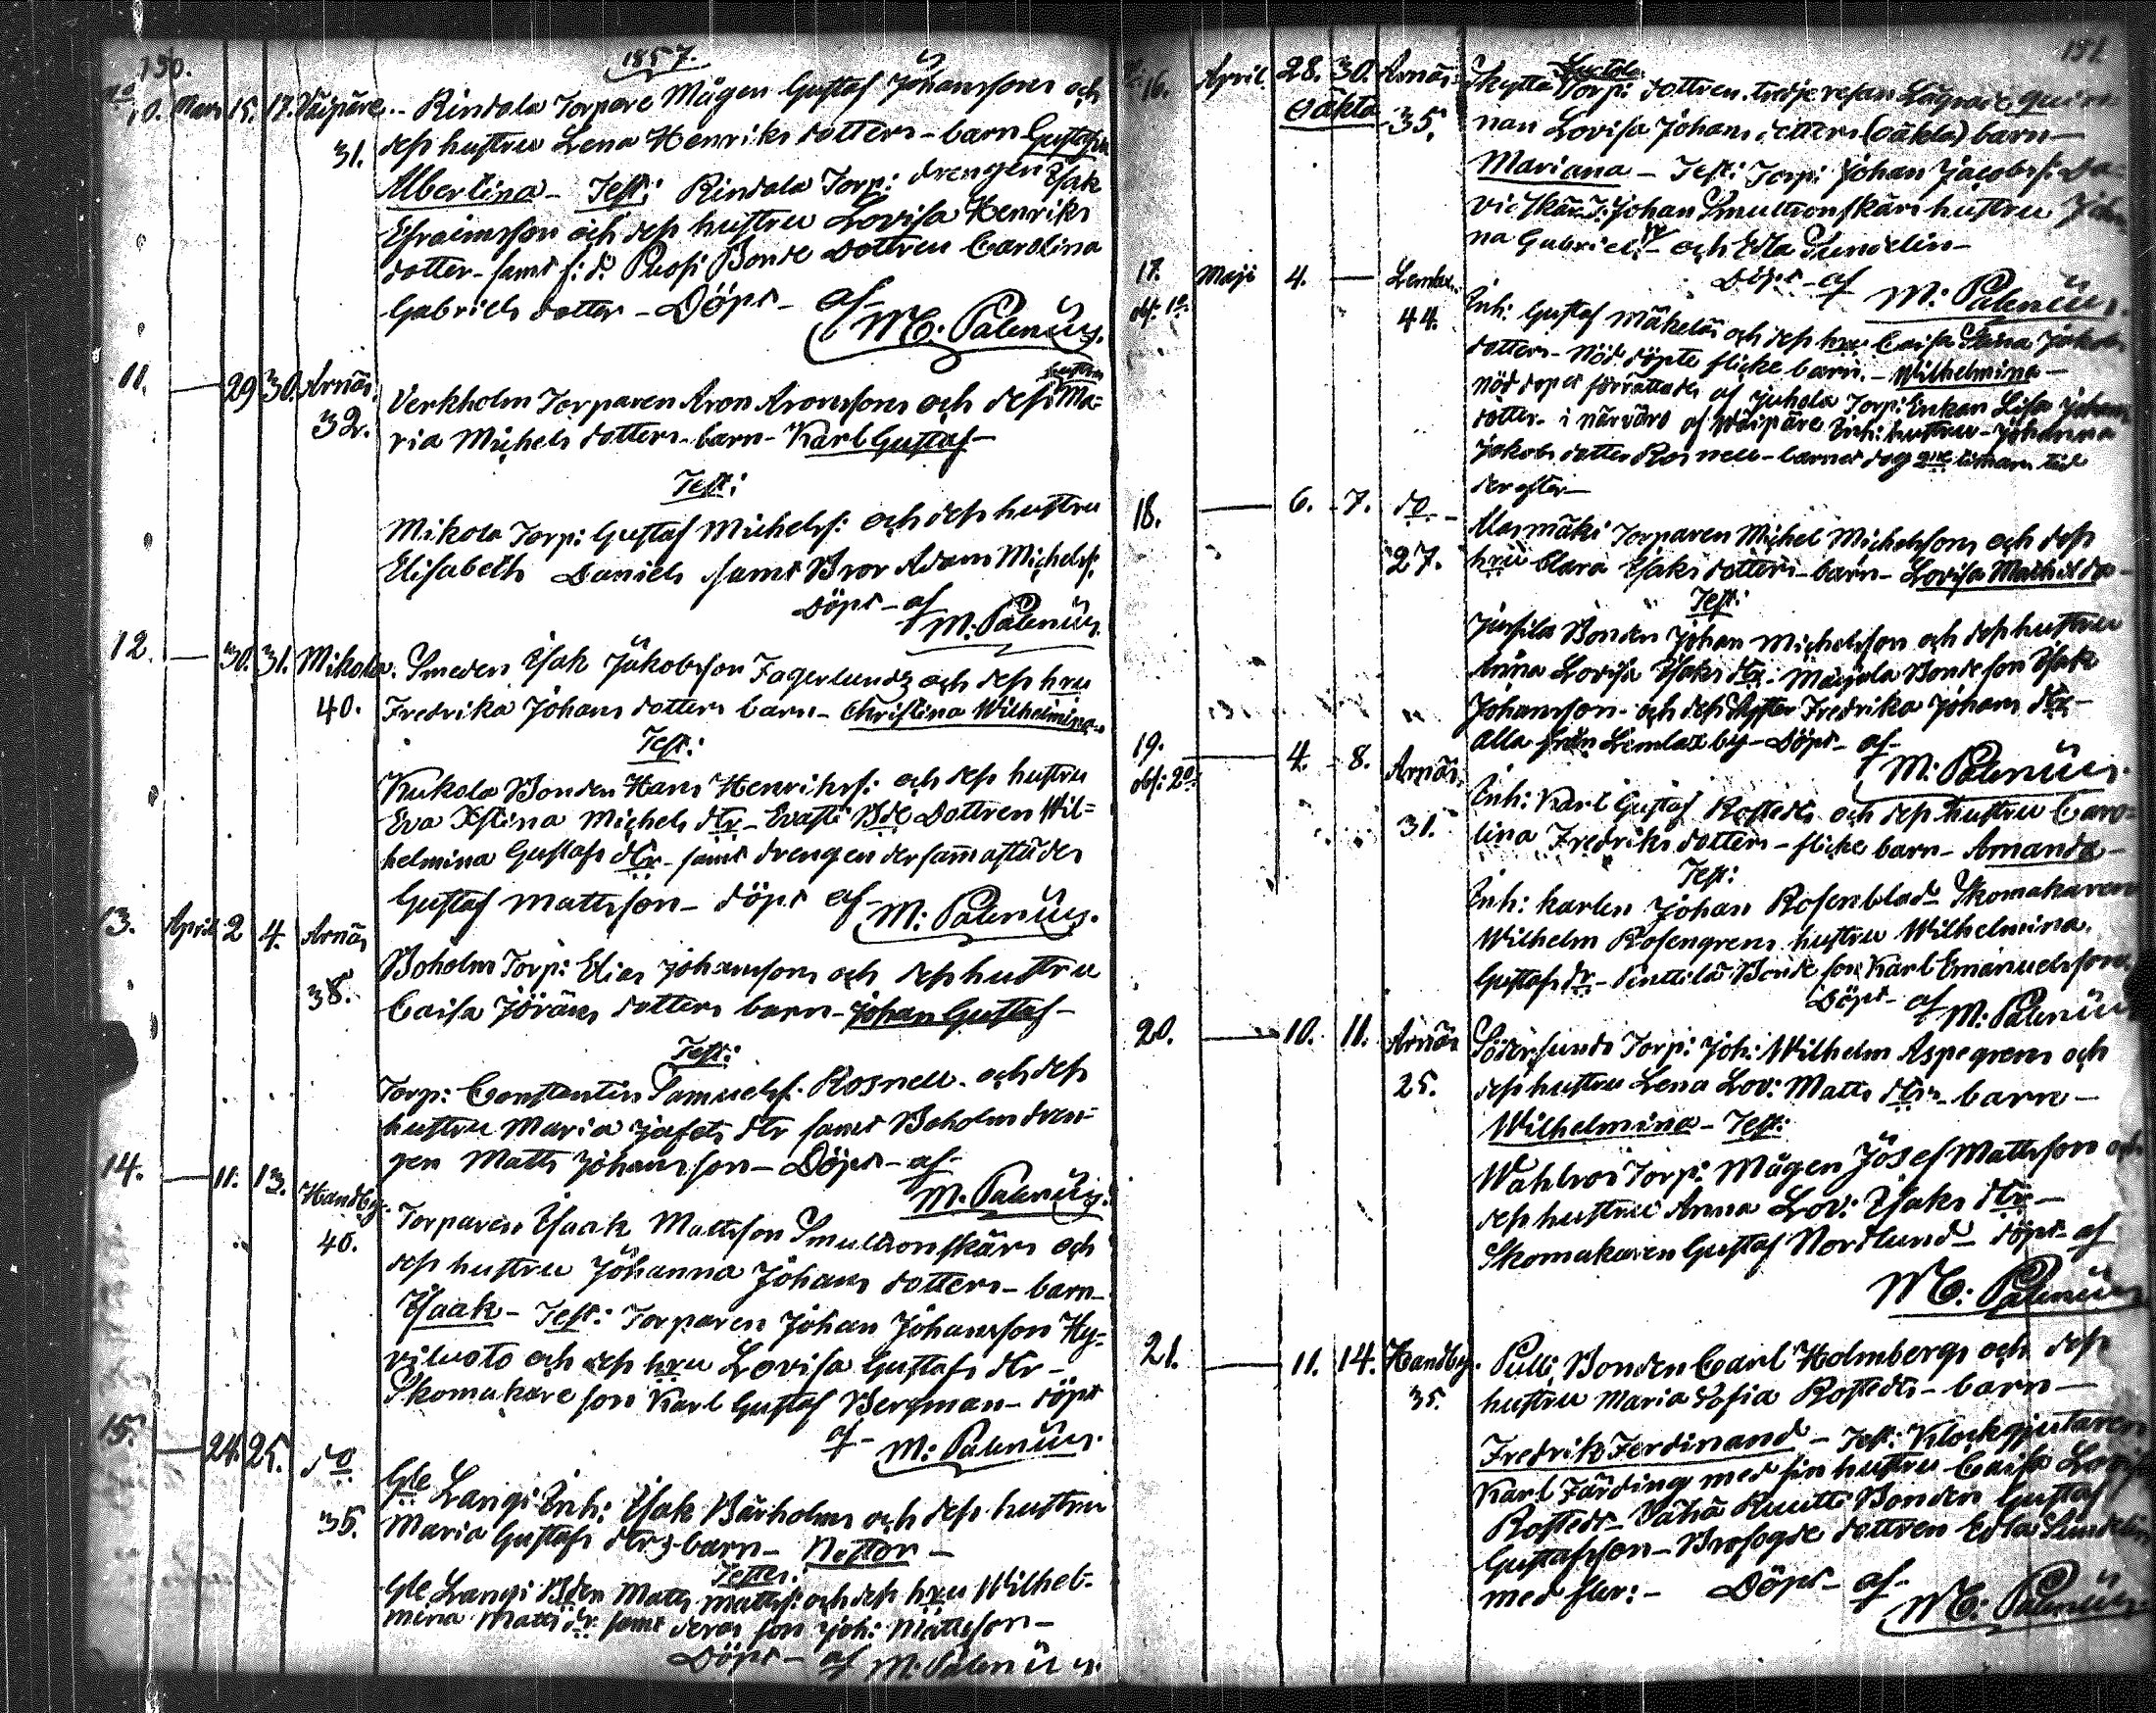 190.
1857.
No 10. Mars 15. 17. Väipäre - Rindala Torpare Mågen Gustaf Johanssons och
31. dess hustru Lena Henriks dotters - barn Gustafva
Albertina - Test: Rindala Torp: drengen Isak
Efraimsson och dess hustru Lovisa Henriks
dotter - samt Bonde dottren Carolina
Gabriels dotter - Döpt - af
M: Palenius.
11. — 29 30. Arnäs. Verkholm Torparen Aron Aronssons och dess hustru Ma=
32. ria Michels dotters - barn - Karl Gustaf -
Test:
Mikola Torp: Gustaf Michelss: och dess hustru
Elisabeth Daniels samt Bror Adam Michelss.
Döpt - af
M: Palenius.
12. — 30. 31. Mikola. Smeden Isak Jakobsson Fagerlunds och dess hru
40. Fredrika Johans dotters barn - Christina Wilhelmina -
Test:
Kukola Bonden Hans Henrikss: och dess hustru
Eva Stina Michels dtr - Bde Dottren Wil=
helmina Gustafs dtr - samt drengen dersammastädes
Gustaf Mattsson - Döpt af - M: Palenius.
13. April 2 4. Arnäs Boholm Torp: Elias Johanssons och dess hustru
38. Caisa Jörans dotters barn - Johan Gustaf -
Test:
Torp: Constantin Samuelss. Rosnell - och dess
hustru Maria Jafets dtr samt Boholm dren=
gen Matts Johansson - Döpt - af
M: Palenius.
14. — 11. 13. Handby. Torparen Isaak Mattsson Smultronskärs och
40. dess hustru Johanna Johans dotters - barn -
Isaak - Test: Torparen Johan Johansson Hy=
viluoto och dess hru Lovisa Gustafs dtr -
Skomakare son Karl Gustaf Bergman - Döpt
af - M: Palenius.
15. — 24. 25. do Gle Langi Inh: Isak Bärholms och dess hustru
35. Maria Gustafs dtrs - barn - Nestor -
Testes:
Gle Langi Bden Matts Mattss: och dess hru Wilhel-
mina Matts dr samt deras son Joh: Mattsson -
Döpt - af M: Palenius.
191
No 16. April. 28. 30. Arnäs. Skytte Torp: dottren tredje resan Lägrade quin
oäkta 35. nan Lovisa Johans dotters (oäkta) barn -
Mariana - Test: Torp: Johan Jacobss: Da=
vidskär, T: Johan Smultronskärs hustru Johan
na Gabriels - och Edla Sundelin -
Döpt - af M: Palenius.
17. Maji 4. — Lemlax. Inh: Gustaf Mäkelä och dess hru Caisa Stina Jakobs
obs: 1o 44. dotters - Nöd döpte flicke barn. - Wilhelmina -
Nöddopet förrättades af Juhola Torp: Enkan Lisa Johans
dotter - i närvaro af Wäipäre Inh: hustru - Johanna
Jakobs dotter Rosnell - barnet dog 2ne timars tid
derefter -
18. — 6. 7. do - Alasmäki Torparen Michel Michelssons och dess
27. hru Clara Isaks dotters - barn - Lovisa Mathilda -
Test:
Jursila Bonden Johan Michelsson och dess hustru
Anna Lovisa Isaks dtr. Bonde son Isak
Johansson - och dess Syster Fredrika Johans dtr -
alla från Lemlax by - Döpt - af -
M: Palenius.
19. — 4. 8. Arnäs. Inh: Karl Gustaf Rostedts och dess hustru Caro=
obs: 2o 31. lina Fredriks dotters - flicke barn - Amanda -
Test:
Inh: karlen Johan Rosenblad Skomakaren
Wilhelm Rosengrens hustru Wilhelmina
Gustafs dr - Bonde son Karl Emanuelsson,
Döpt - af
M: Palenius
20. — 10. 11. Arnäs Södersunds Torp: Joh: Wilhelm Aspegrens och
25. dess hustru Lena Lov: Matts dtrs - barn -
Wilhelmina - Test:
Torp: Mågen Josef Mattsson och
dess hustru Anna Lov: Isaks dtr -
Skomakaren Gustaf Nordlund - Döpt - af
M: Palenius
21. — 11. 14. Handby. Pulli Bonden Carl Holmbergs och dess
35. hustru Maria Sofia Rostedts - barn -
Fredrik Ferdinand - Test: Klockgjutaren
Karl Färding med sin hustru Caisa Lovisa
Rostedt - Vähä Ruutti Bonden Gustaf
Gustafsson - dottren Edla Sundelin
med fler: - Döpt - af -
M: Palenius